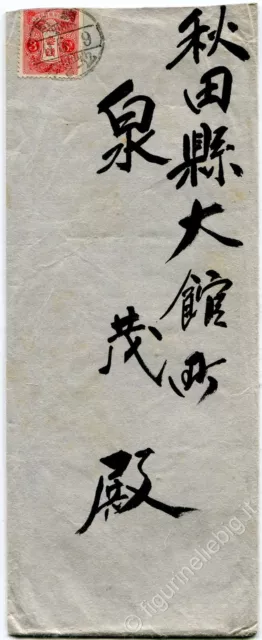 秋田縣大館町
泉茂殿
3
9
©figurineliebig.it